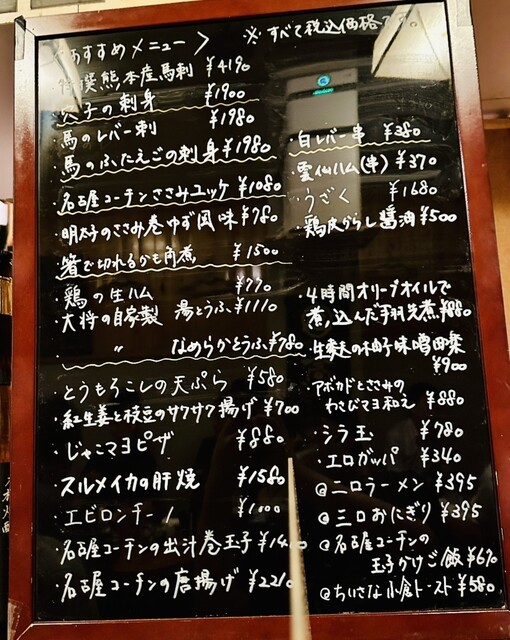 〈おすすめメニュー〉 ※すべて税込価格です。
特撰熊本産馬刺 ¥4190
穴子の刺身 ¥1900
・馬のレバー刺 ¥1980
・馬のふたえごの刺身 ¥1980
・名古屋コーチンささみユッケ ¥1080
・明太子のささみ巻ゆず風味 ¥780
・箸で切れるかも角煮 ¥1500
・鶏の生ハム ¥770
・大将の自家製 湯とうふ ¥1110
・ 〃 なめらかとうふ ¥780
・とうもろこしの天ぷら ¥580
・紅生姜と枝豆のサクサク揚げ ¥700
・じゃこマヨピザ ¥880
・スルメイカの肝焼 ¥1580
・エビロンチーノ ¥1000
・名古屋コーチンの出汁巻玉子 ¥14
・名古屋コーチンの唐揚げ ¥2210
・白レバー串 ¥380
・雲仙ハム(串) ¥370
・うざく ¥1680
・鶏皮からし醤油 ¥500
・4時間オリーブオイルで
煮込んだ手羽先煮 ¥880
・生麩の柚子味噌田楽
¥900
・アボカドとささみの
わさびマヨ和え ¥880
・シラ玉 ¥780
・エロガッパ ¥340
@二口ラーメン ¥395
@三口おにぎり ¥395
@名古屋コーチンの
玉子かけご飯 ¥670
@ちいさな小倉トースト ¥580